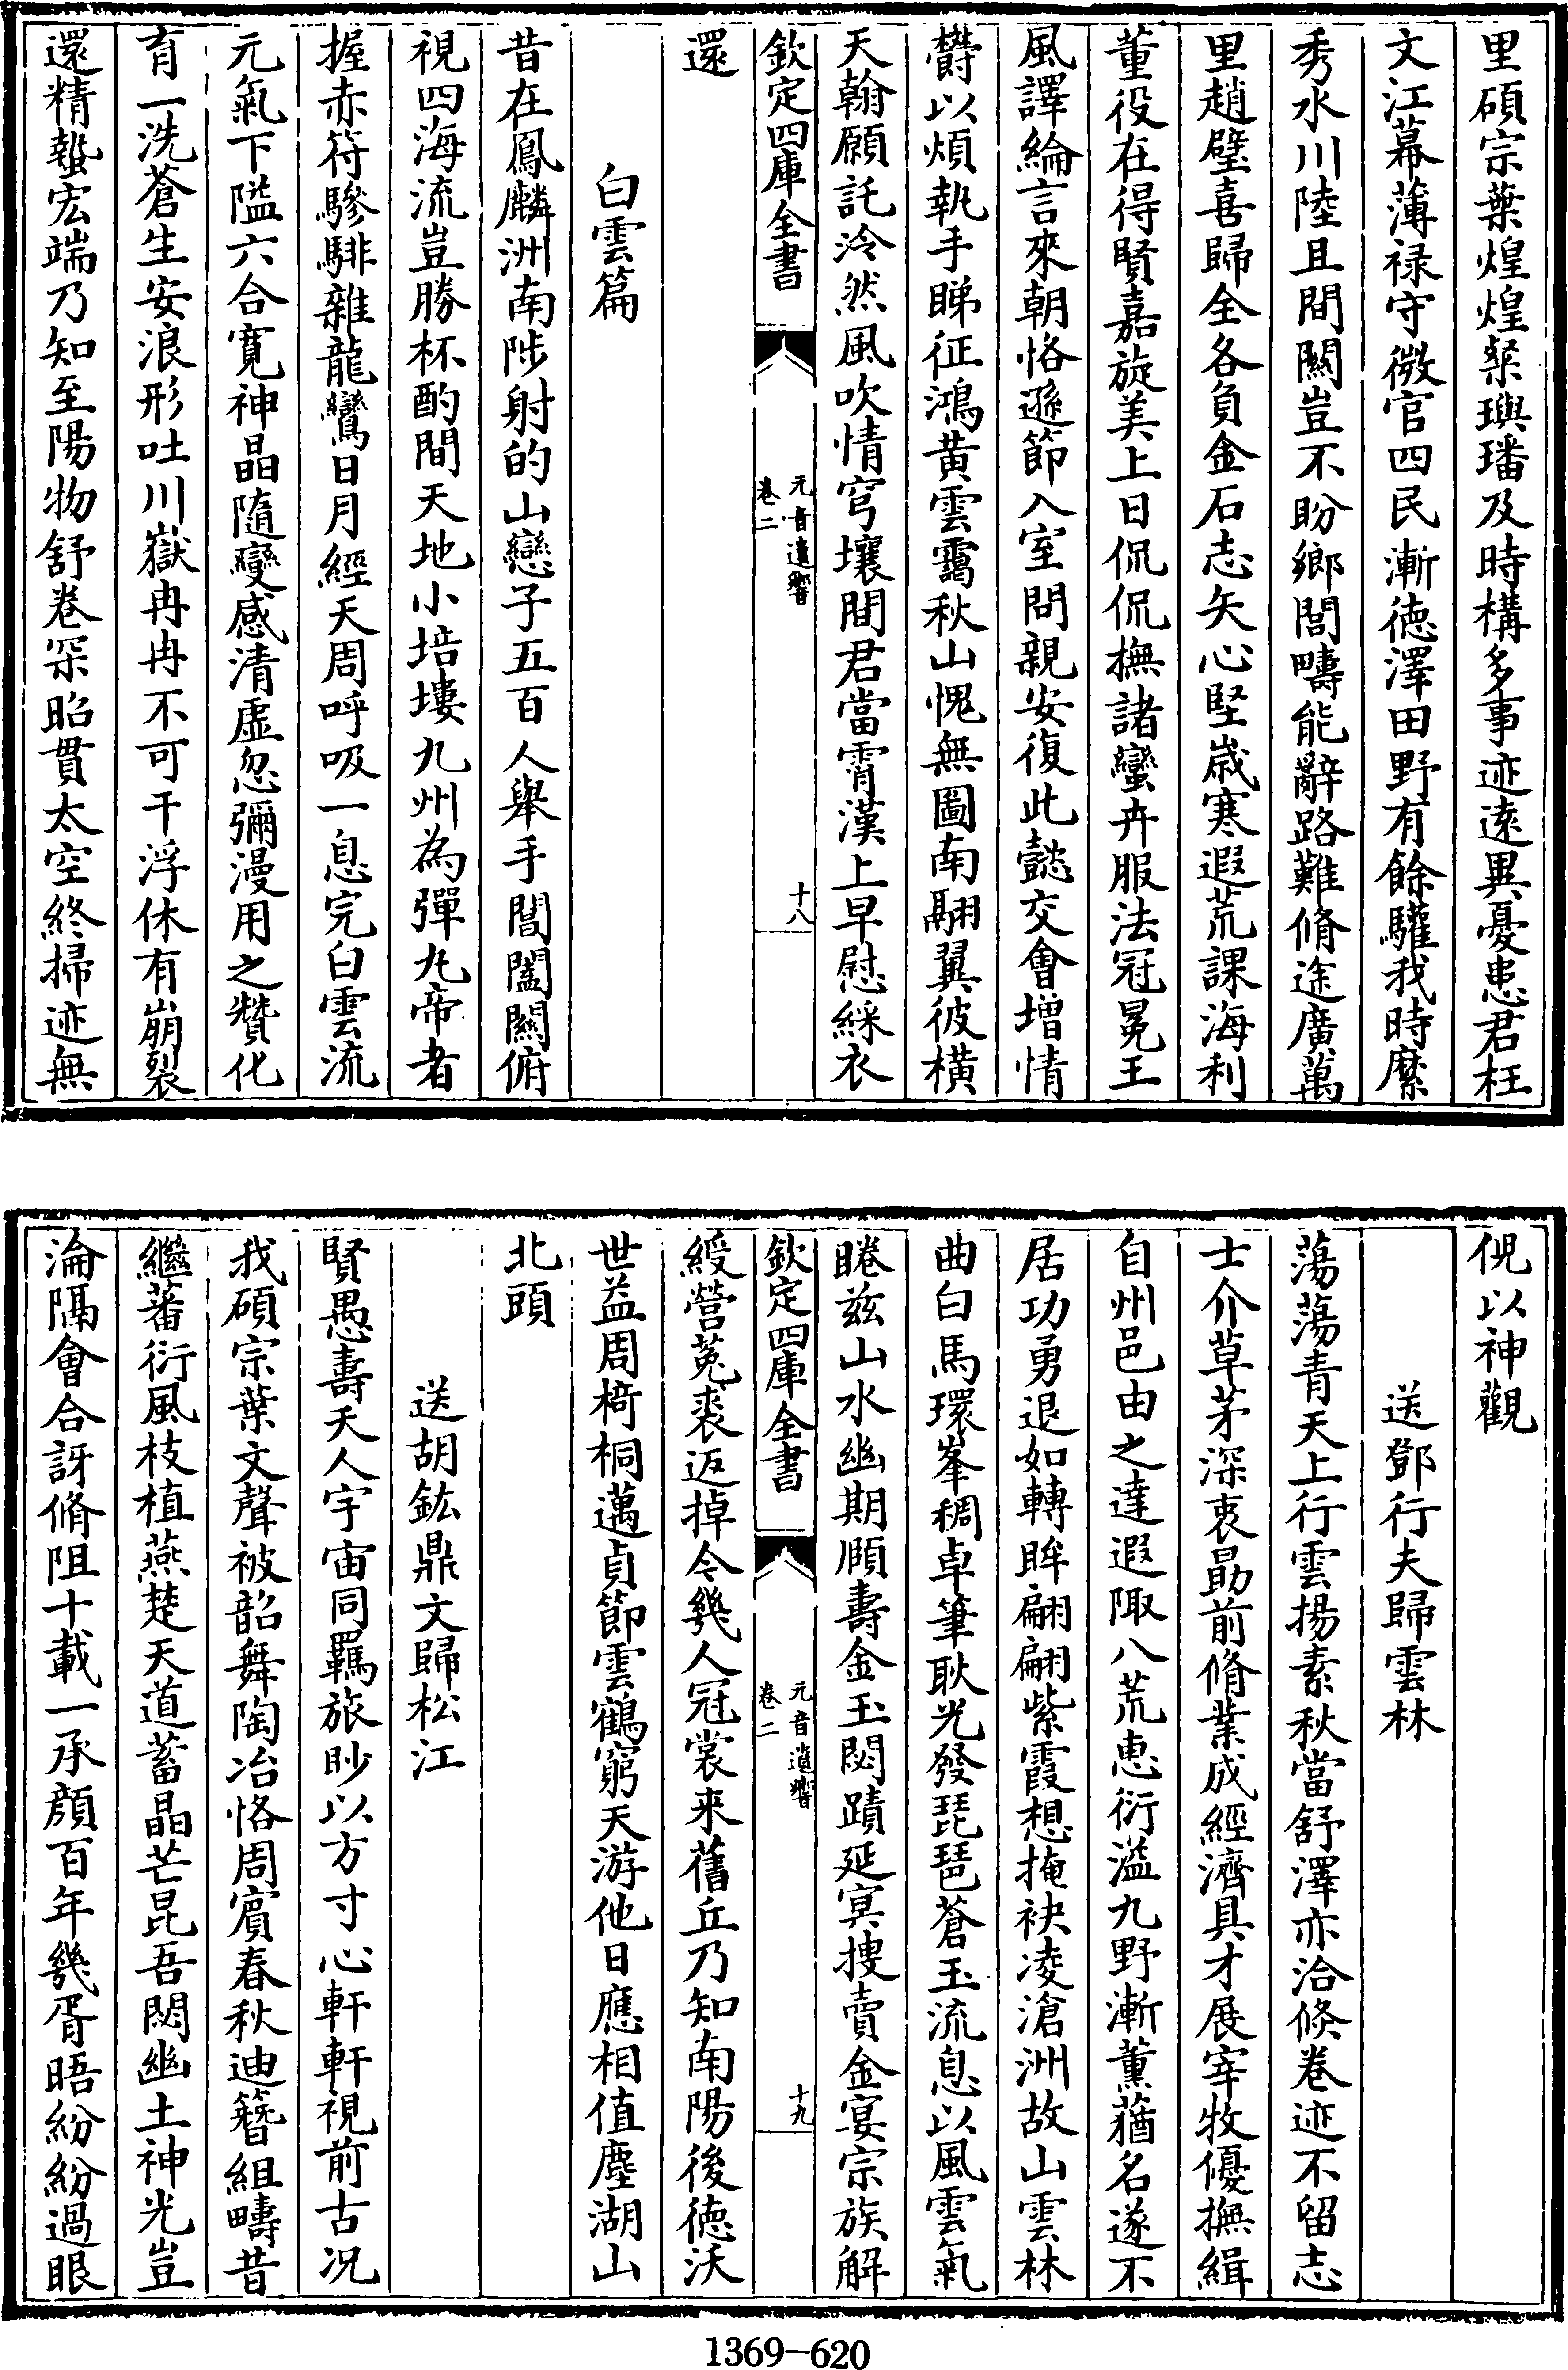 里碩宗葉煌煌粲璵璠及時構多事迹遠異憂患君枉
文江幕薄禄守微官四民漸徳澤田野有餘驩我時縻
秀水川陸且間闗豈不盼鄉閭疇能辭路難脩途廣萬
里趙璧喜歸全各負金石志矢心堅歳寒遐荒課海利
董役在得賢嘉旋美上日侃侃撫諸蠻卉服法冠冕王
風譯綸言來朝恪遜節入室問親安復此懿交會增情
欝以煩執手睇征鴻黄雲靄秋山愧無圖南翮翼彼横
天翰願託泠然風吹情穹壤間君當霄漢上早慰綵衣
欽定四庫全書
元音遺響
卷二
十八
還
白雲篇
昔在鳳麟洲南陟射的山戀子五百人舉手閶闔闗俯
視四海流豈勝杯酌間天地小培塿九州為彈丸帝者
握赤符驂騑雜龍鸞日月經天周呼吸一息完白雲流
元氣下隘六合寛神晶隨變感清虚忽彌漫用之贊化
育一洗蒼生安浪形吐川嶽冉冉不可干浮休有崩裂
還精蟄宏端乃知至陽物舒卷罙昭貫太空終掃迹無
俔以神觀
送鄧行夫歸雲林
蕩蕩青天上行雲揚素秋當舒澤亦洽倐卷迹不留志
士介草茅深衷勗前脩業成經濟具才展宰牧優撫緝
自州邑由之達遐陬八荒恵衍溢九野漸薰蕕名遂不
居功勇退如轉眸翩翩紫霞想掩袂凌滄洲故山雲林
曲白馬環峯稠卓筆耿光發琵琶蒼玉流息以風雲氣
睠兹山水幽期頋壽金玉閟蹟延㝠搜賣金宴宗族解
欽定四庫全書
元音遺響
卷二
十九
綬營菟裘返掉令幾人冠裳来舊丘乃知南陽後徳沃
世益周椅桐邁貞節雲鶴窮天游他日應相值塵湖山
北頭
送胡鈜鼎文歸松江
賢愚壽夭人宇宙同羈旅眇以方寸心軒軒視前古况
我碩宗葉文聲被韶舞陶冶恪周賓春秋迪簪組疇昔
繼蕃衍風枝植燕楚天道蓄晶芒昆吾閟幽土神光豈
淪隔會合訝脩阻十載一承顔百年幾胥晤紛紛過眼
1369-620